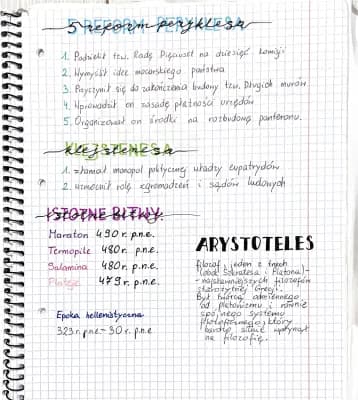 5 reform peryklesa
1. Podzielił tzw. Radę Pięciuset na dziesięć komisji
2. Wymyślił ideę mocarskiego państwa
3. Przyczynił się do zakończenia budowy tzw. Długich murów
4. Wprowadził on zasadę płatności urzędów
5. Organizował on środki na rozbudowę panteronu.
klejstenesa
1. złamał monopol politycznej władzy eupatrydów
2. wzmocnił rolę zgromadzeń i sądów ludowych
ISTOTNE BITWY:
Maraton 490r. p.n.e.
Termopile 480r. p.n.e.
Salamina 480r. p.n.e.
Plateje 479r. p.n.e.
Epoka hellenistyczna
323r. p.n.e – 30r. p.n.e
ARYSTOTELES
filozof, jeden z trzech
(obok Sokratesa i Platona) -
- najsławniejszych filozofów
starożytnej Grecji.
Był twórcą odmiennego
od platonizmu i równie
spójnego systemu
filozoficznego, który
bardzo silnie wpłynął
na filozofię.